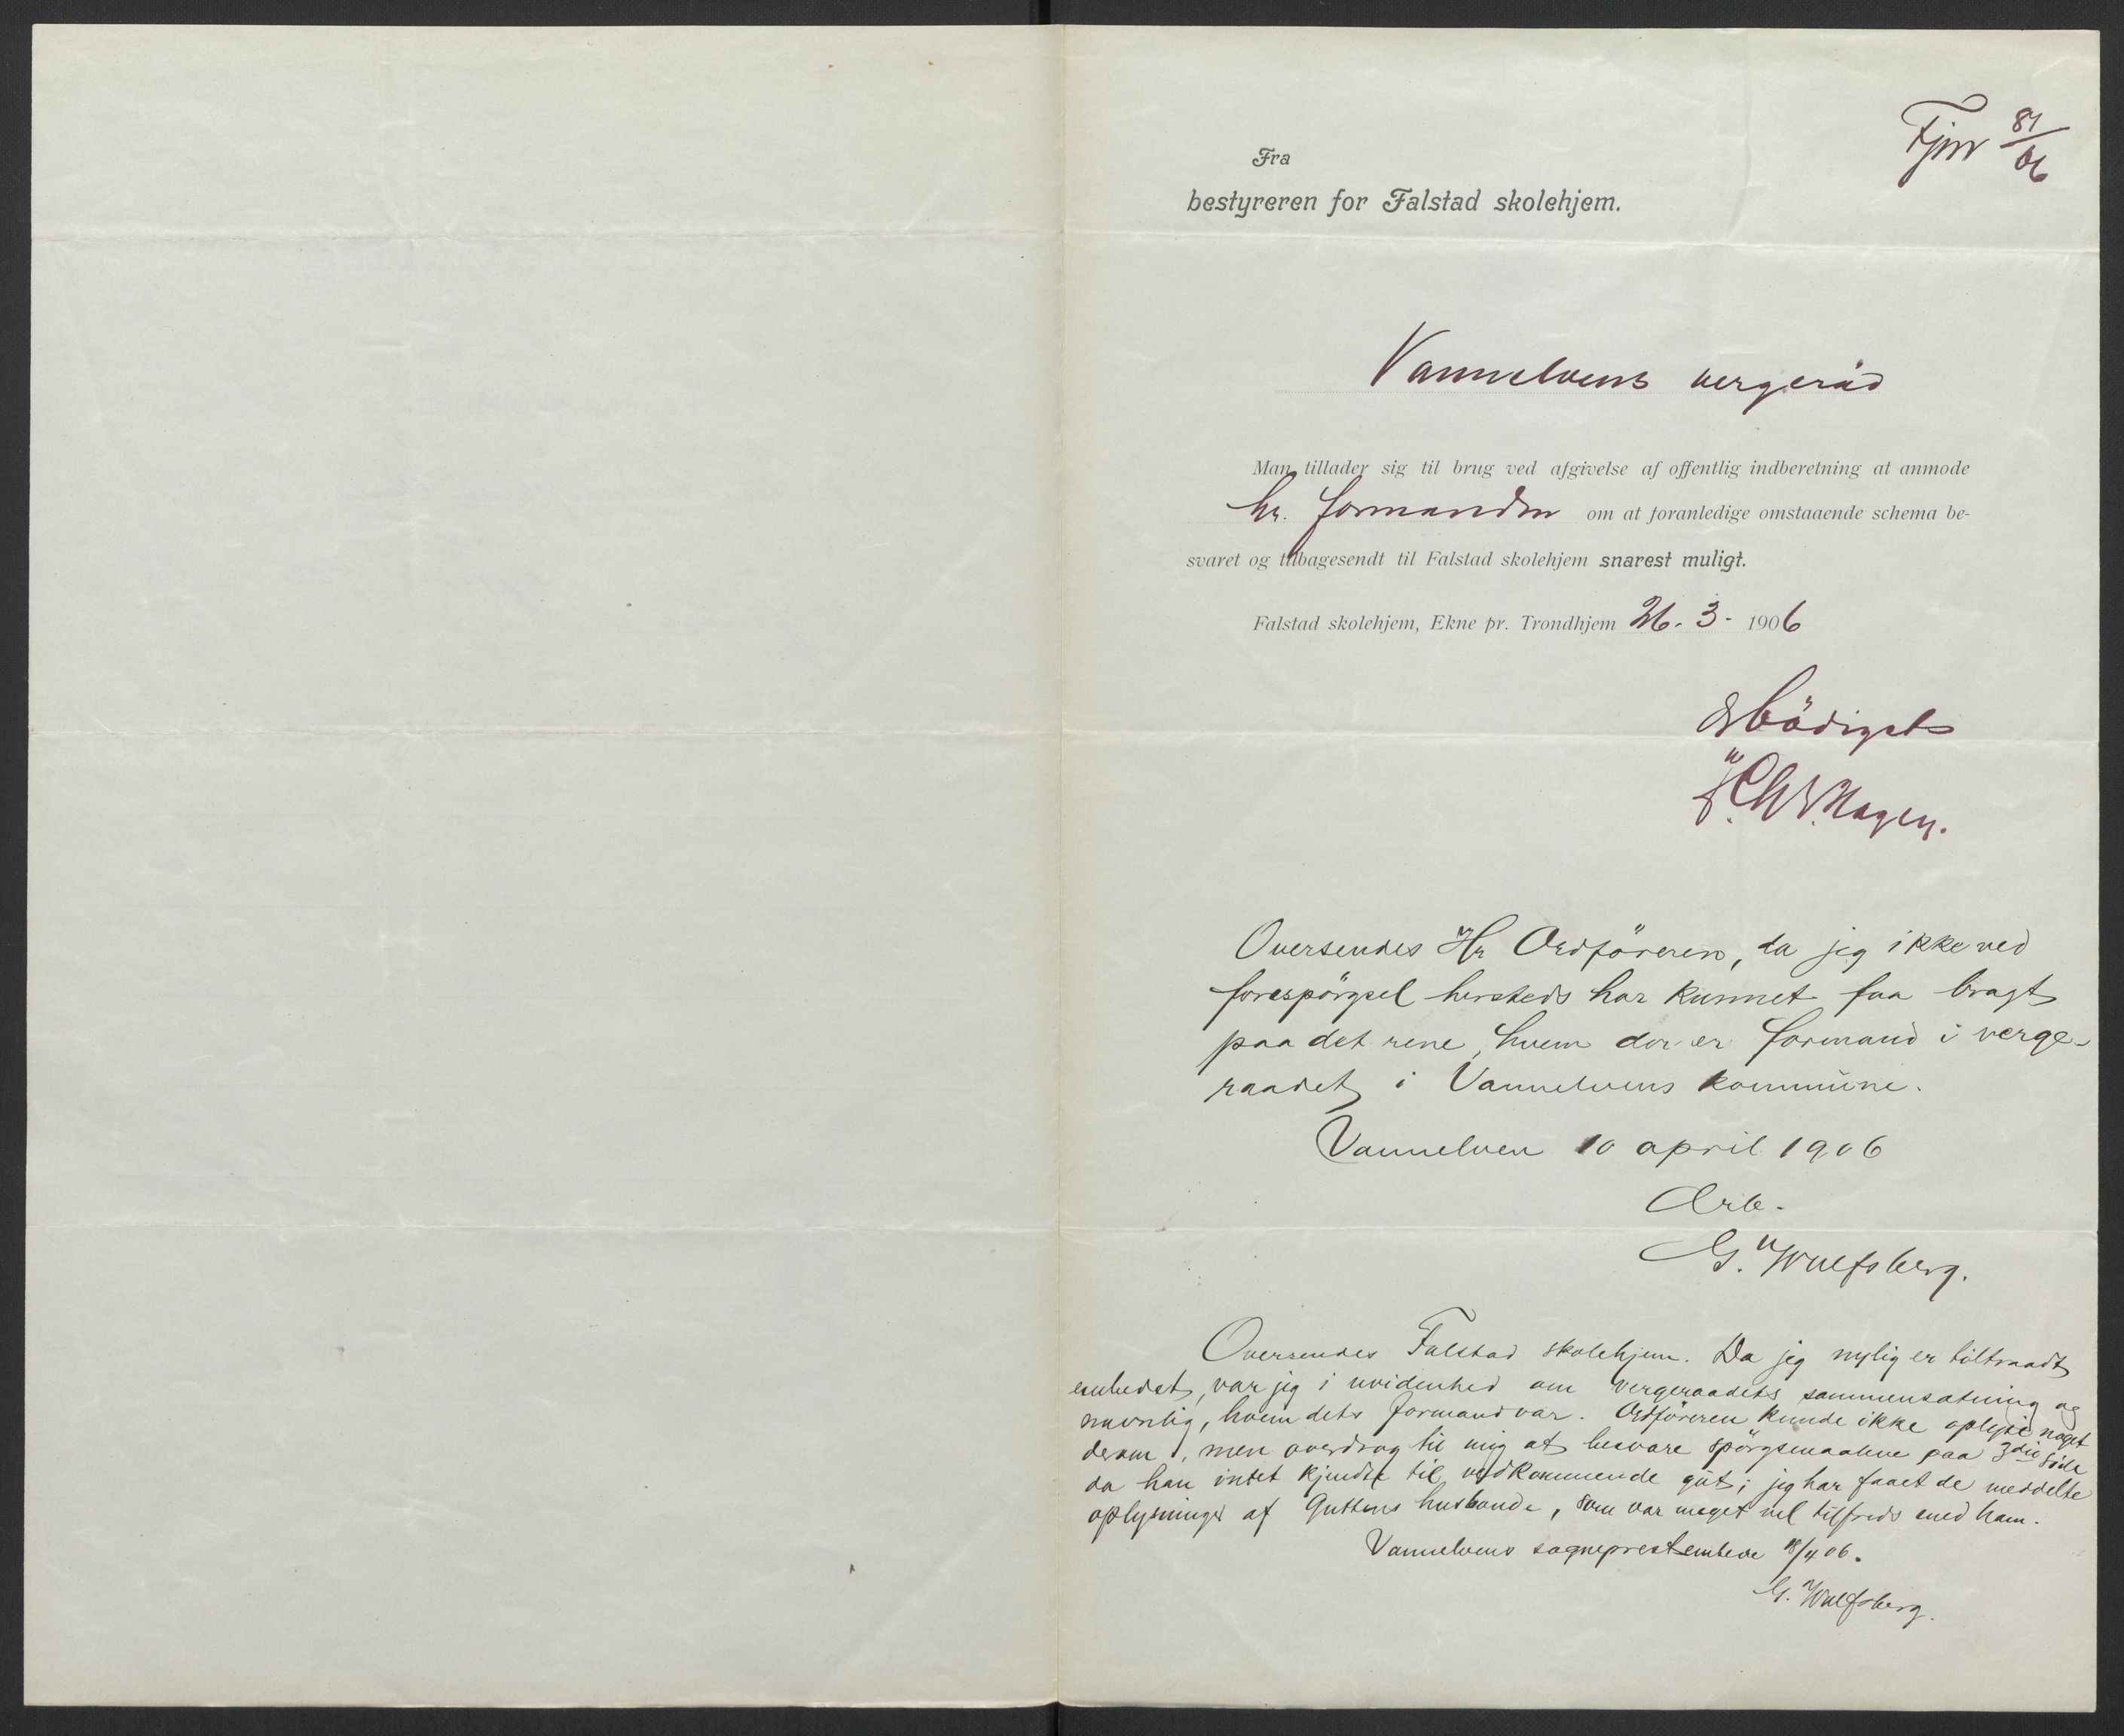 Fjnr 81/06
Fra
bestyreren for Falstad skolehjem.
Vannelvens vergeråd
Man tillader sig til brug ved afgivelse af offentlig indberetning at anmode
hr. formanden om at foranledige omstaaende schema be-
svaret og tilbagesendt til Falstad skolehjem snarest muligt.
Falstad skolehjem, Ekne pr. Trondhjem 26. 3. 1906
Ærbödigst
Hagen.
Oversendes Hr Ordföreren, da jeg ikke ved
forespörgsel hersteds har kunnet faa bragt
paa det rene, hvem der er formand i verge-
raadet i Vannelvens kommune.
Vannelven 10 april 1906
Ærb.
G. Wulfsberg.
Oversendes Falstad skolehjem. Da jeg nylig er tiltraadt
embedet, var jeg i uvidenhed om vergeraadets sammensætning og
navnlig, hvem dets formand var. Ordföreren kunde ikke oplyse noget
derom, men overdrog til mig at besvare spörgsmaalene paa 3die side
da han intet kjendte til vedkommende gut; jeg har faaet de meddelte
oplysninger af Guttens husbonde, som var meget vel tilfreds med ham.
Vannelvens sogneprestembede 18/4 06.
G. Wulfsberg.